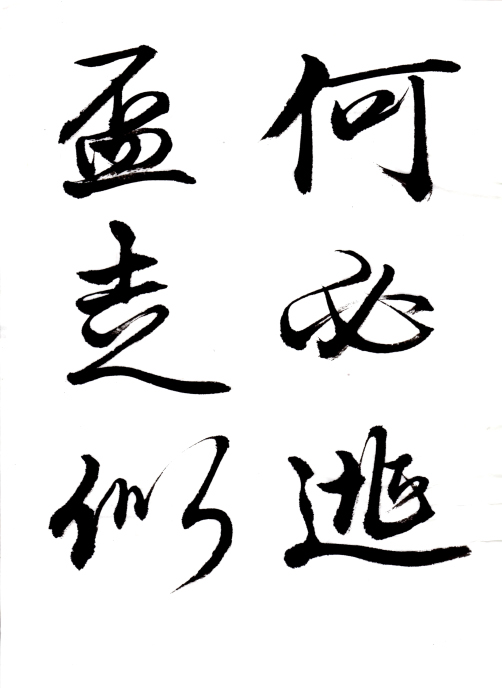 何必逃
盃走似